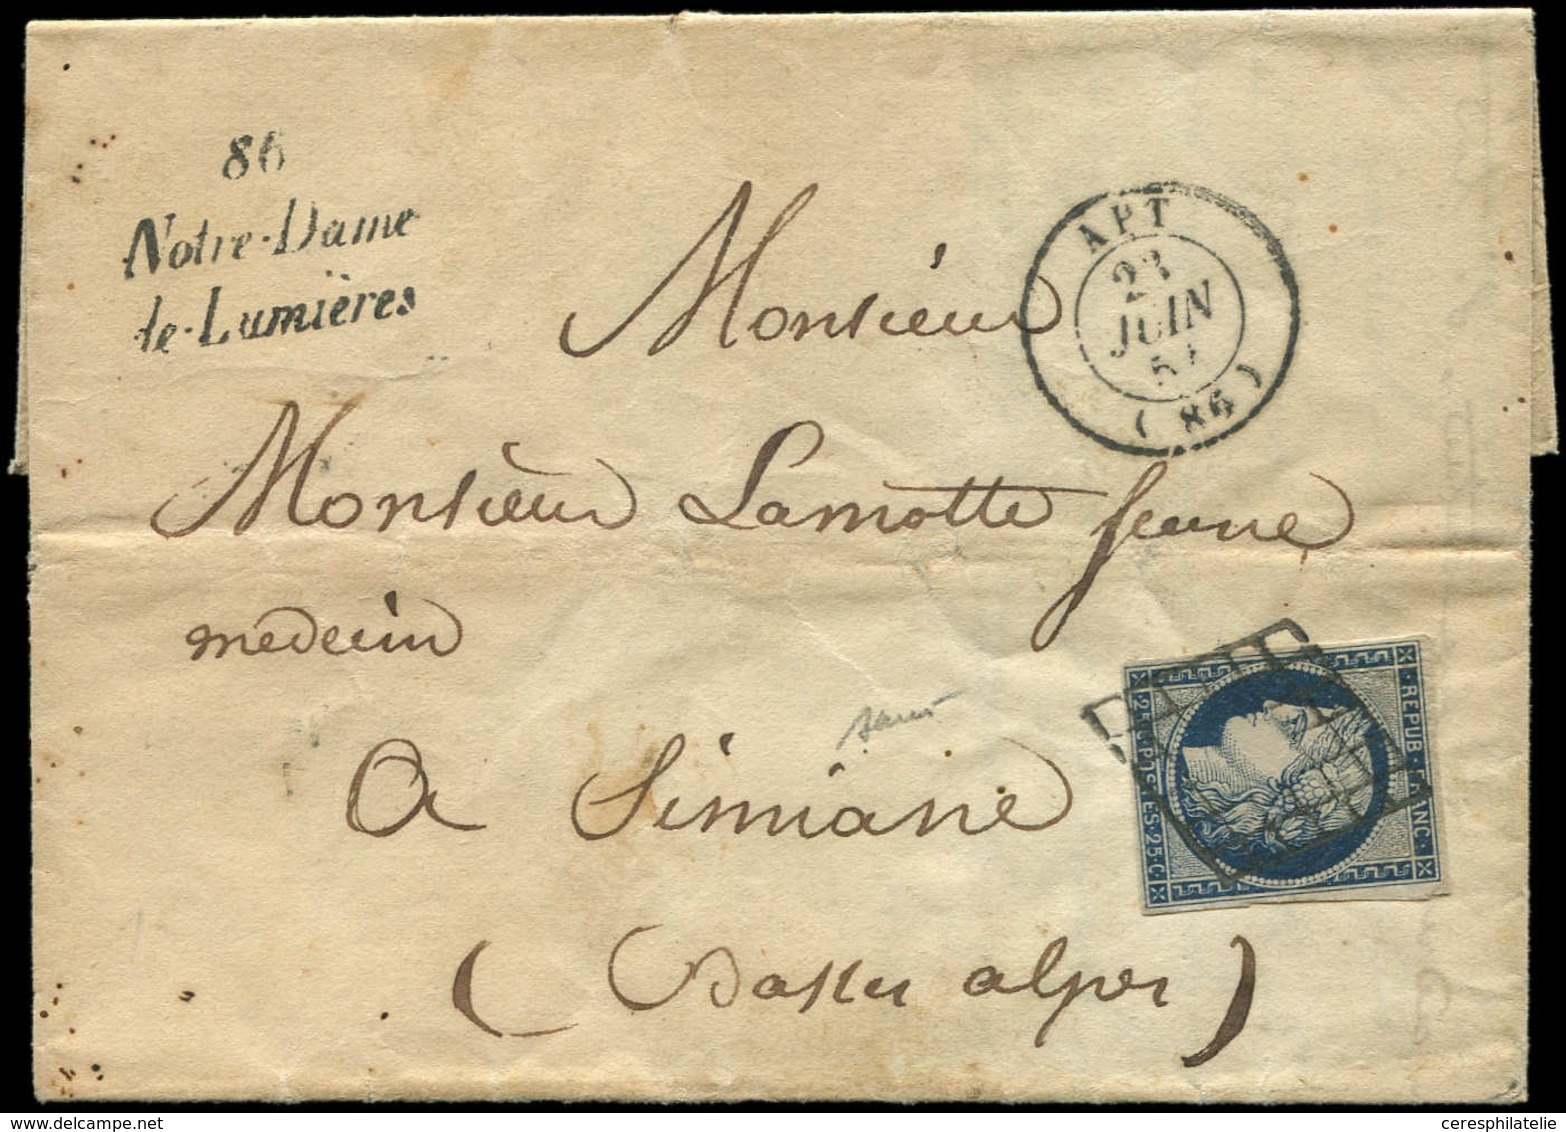 86
Notre-Dame
de-Lumières
APT
23
JUIN
(86)
Monsieur
Monsieur Lamotte jeune
medecin
a Simiane
(Basses alpes)
REPUB. FRANC.
25.C. POSTES.25.C.
ceresphilatelie